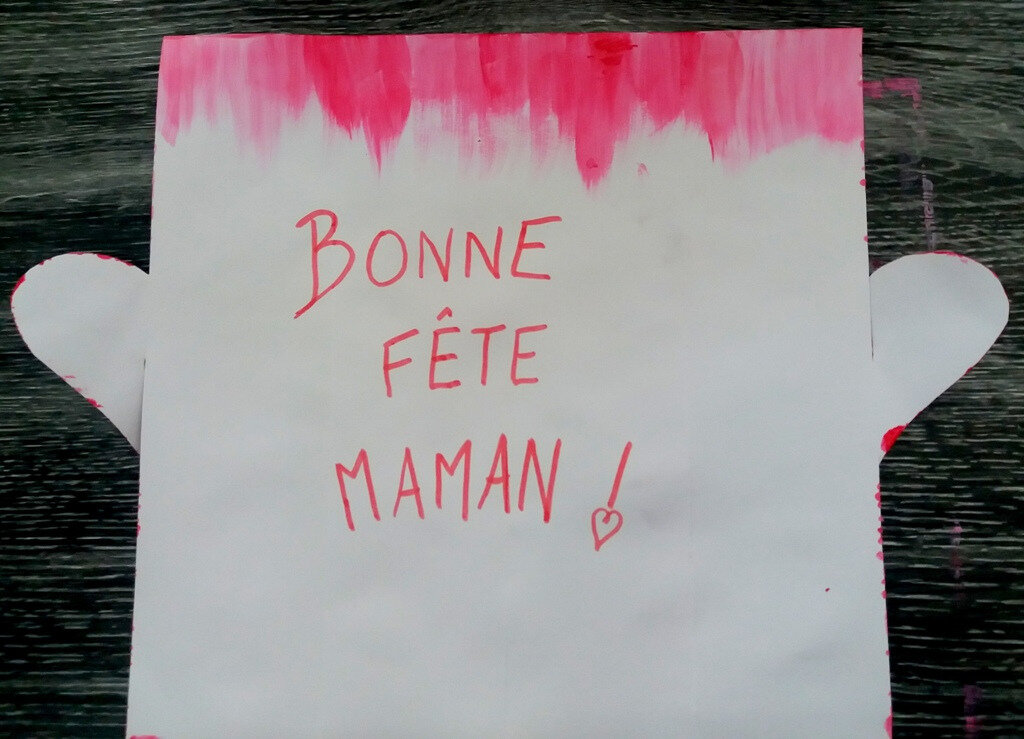 BONNE
FÊTE
MAMAN !